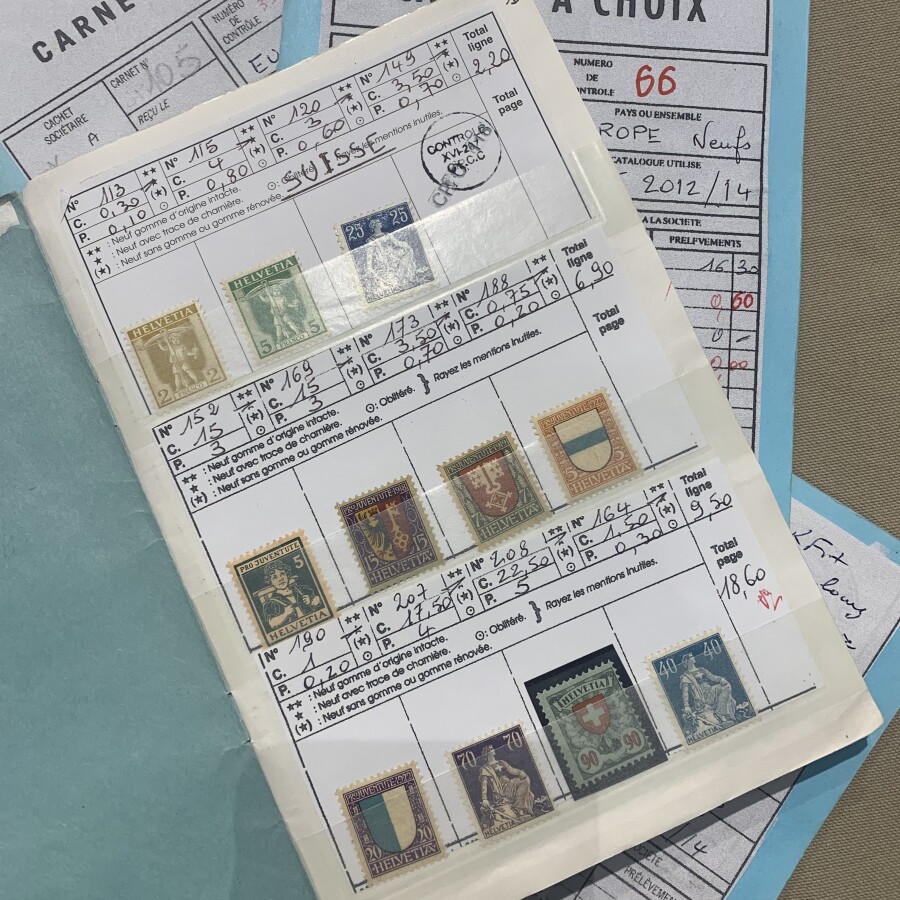 CARNE
CACHET
SOCIÉTAIRE
CARNET N°
105
REÇU LE
NUMÉRO
DE
CONTRÔLE
A CHOIX
NUMERO
DE
CONTROLE
66
PAYS OU ENSEMBLE
ROPE Neufs
CATALOGUE UTILISE
2012/14
A LA SOCIETE
PRELEVEMENTS
16 30
0 60
0 -
N° 113 ** N° 115 ** N° 120 ** N° 149 ** Total ligne
C. 0,30 (*) C. 4 (*) C. 3 (*) C. 3,50 (*) 2,20
P. 0,10 P. 0,80 P. 0,60 P. 0,70
** : Neuf gomme d'origine intacte.
* : Neuf avec trace de charnière. ⊙: Oblitéré. Rayez les mentions inutiles.
(*) : Neuf sans gomme ou gomme rénovée.
SUISSE
CONTROLE
Total page
HELVETIA
2 2
FRANCO
HELVETIA
5 5
FRANCO
25 25
N° 152 ** N° 169 ** N° 173 ** N° 188 ** Total ligne
C. 15 (*) C. 15 (*) C. 3,50 (*) C. 0,75 (*) 6,90
P. 3 P. 3 P. 0,70 P. 0,20
** : Neuf gomme d'origine intacte.
* : Neuf avec trace de charnière. ⊙: Oblitéré. } Rayez les mentions inutiles.
(*) : Neuf sans gomme ou gomme rénovée.
Total page
PRO JUVENTUTE
5
HELVETIA
PRO JUVENTUTE
15 15
HELVETIA
PRO JUVENTUTE
7½
HELVETIA
PRO JUVENTUTE
5 5
HELVETIA
N° 190 ** N° 207 ** N° 208 ** N° 164 ** Total ligne
C. 1 (*) C. 17,50 (*) C. 22,50 (*) C. 1,50 (*) 9,50
P. 0,20 P. 4 P. 5 P. 0,30
** : Neuf gomme d'origine intacte.
* : Neuf avec trace de charnière. ⊙: Oblitéré. } Rayez les mentions inutiles.
(*) : Neuf sans gomme ou gomme rénovée.
Total page
18,60
PRO JUVENTUTE 1922
20 20
HELVETIA
70 70
HELVETIA
HELVETIA
90 90
40 40
HELVETIA
SOCIÉTÉ
PRÉLÈVEMEN